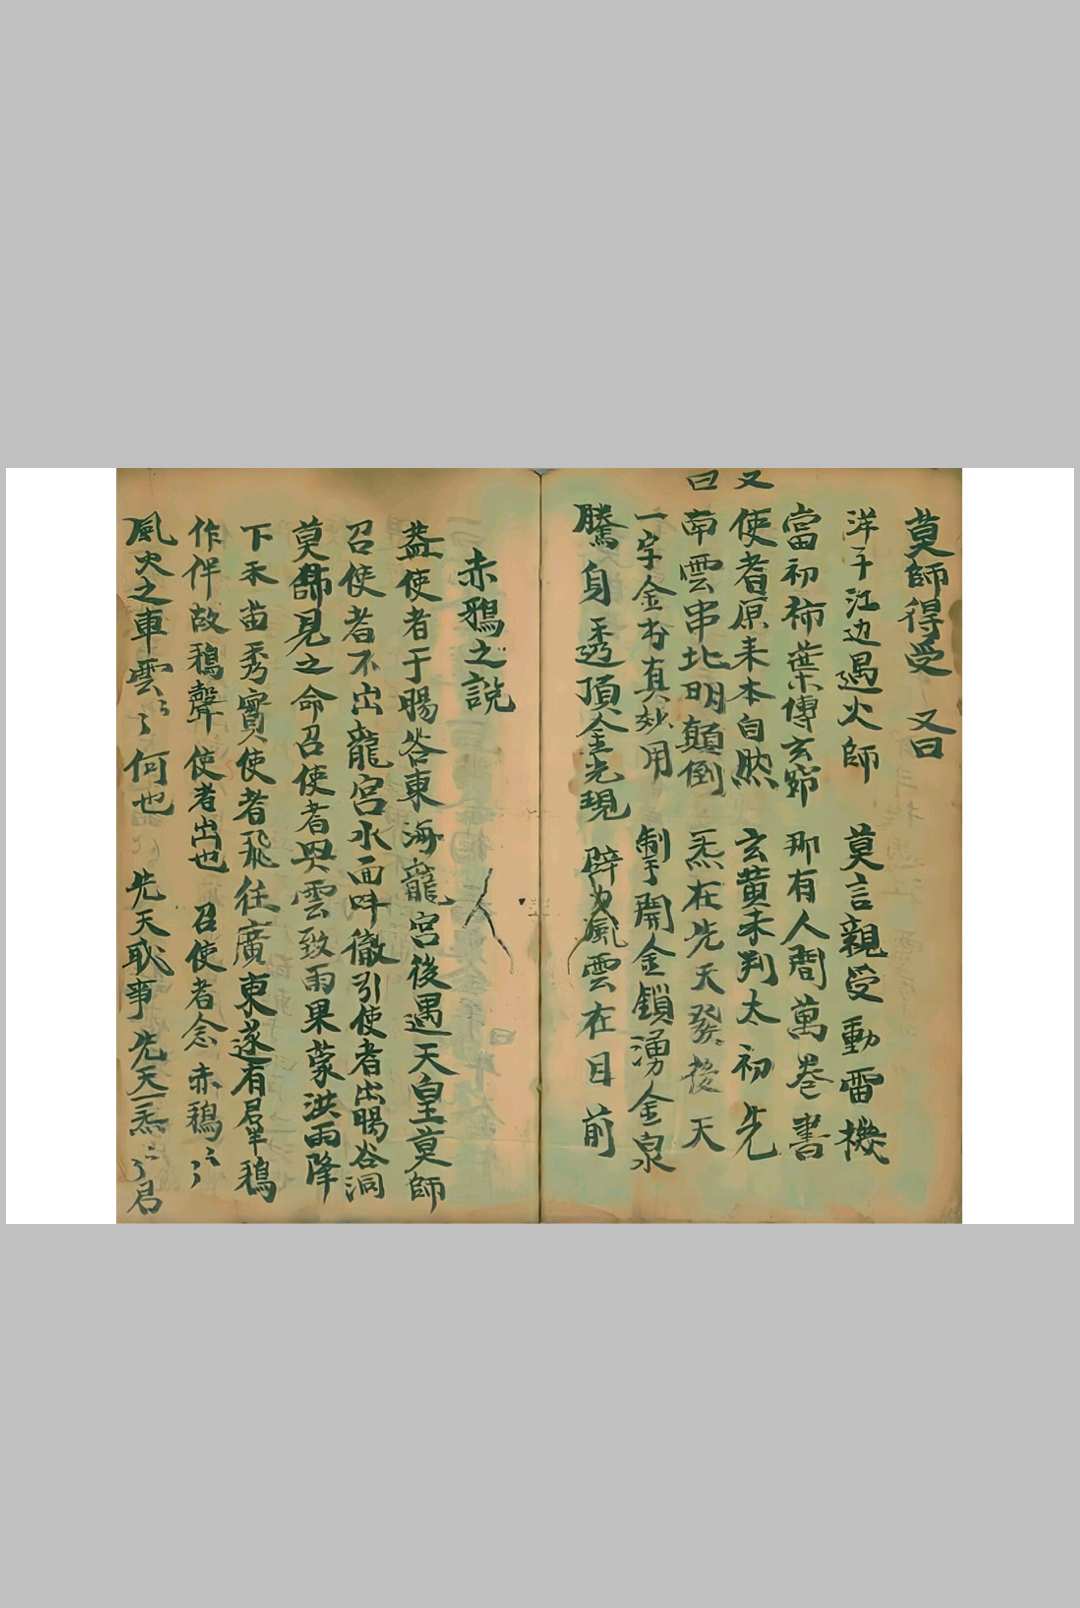 莫師得受 又曰
洋子江边遇火師 莫言親受動雷機
當初柿葉傳玄竅 那有人間萬卷書
使者原来本自然 玄黄未判太初先
又曰 南雲串北明顛倒 炁在先天發後天
一字金書真妙用 掣開金鎖湧金泉
騰身透頂金光現 霹靂風雲在目前
赤鴉之説
盖使者于暘谷東海龍宮後遇天皇莫師
召使者不出龍宮水面吽徹引使者出暘谷洞
莫師見之命召使者興雲致雨果蒙洪雨降
下禾苗秀實使者飛往廣東遂有君半鴉
作伴故鴉聲使者出也 召使者念赤鴉〻了
風火之車雲〻了何也 先天耿事先天一炁〻了君